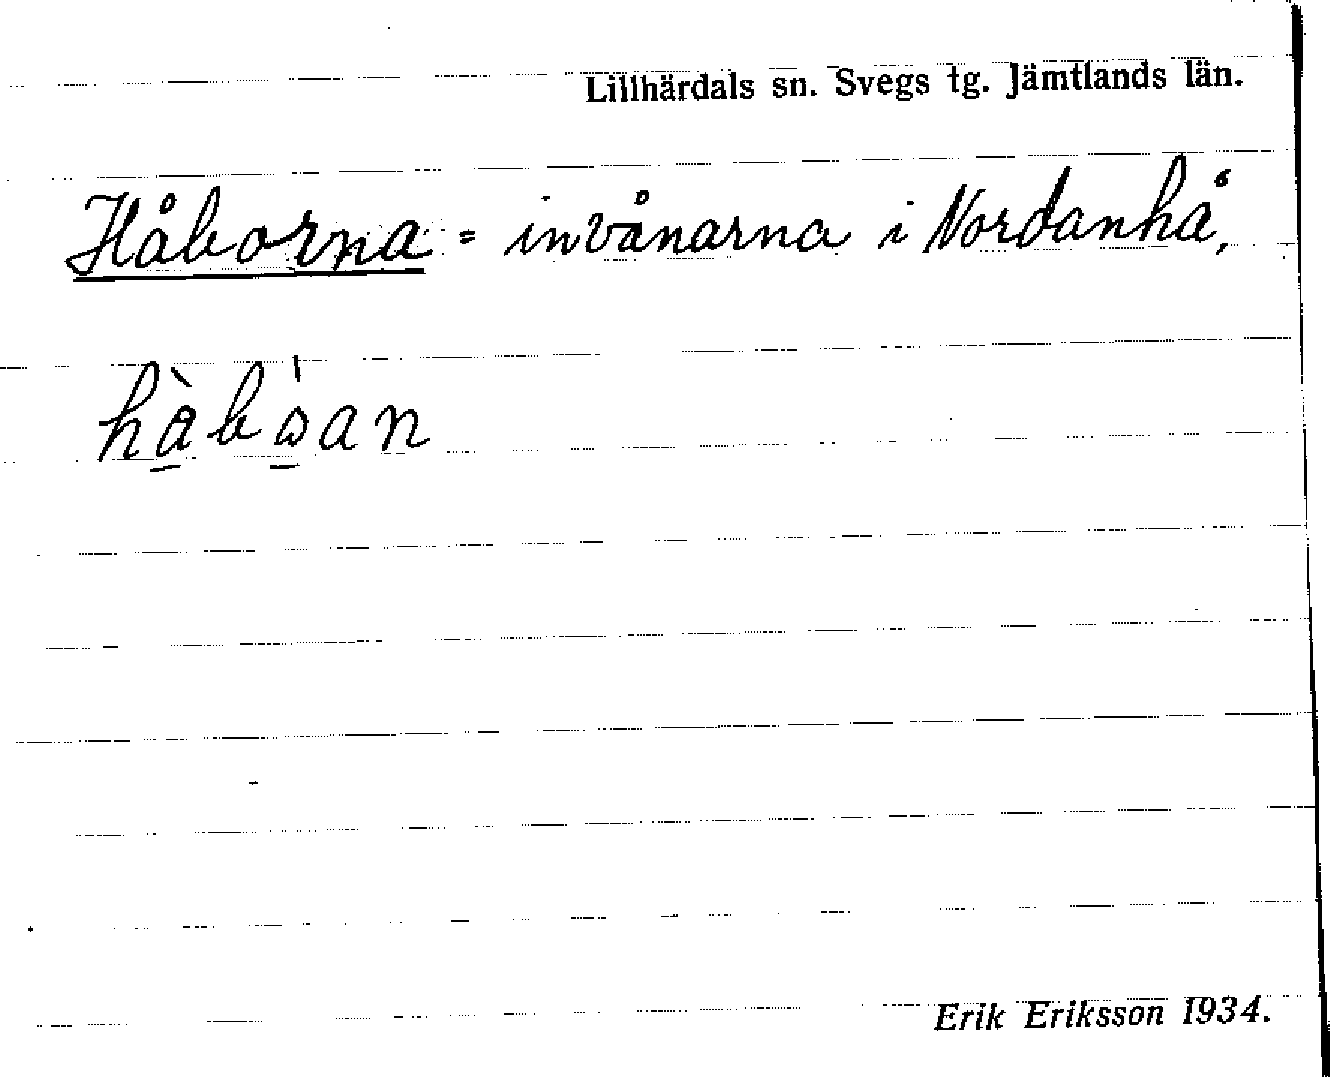 Lillhärdals sn. Svegs tg. Jämtlands län.
Håborna = invånarna i Nordanhå,
hàbåan
Erik Eriksson 1934.